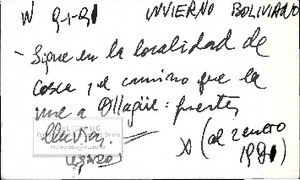 W 9-1-91 INVIERNO BOLIVIANO
- Sigue en la localidad de
Cosca, y el camino que la
une a Ollagüe: fuertes
lluvias.
(al 2 enero
1991)